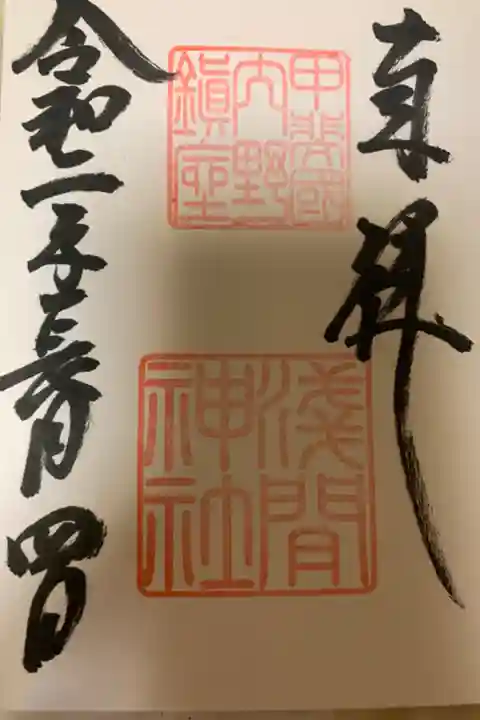 奉拝
甲斐國
内野
鎮座
淺間
神社
令和二年 月四日